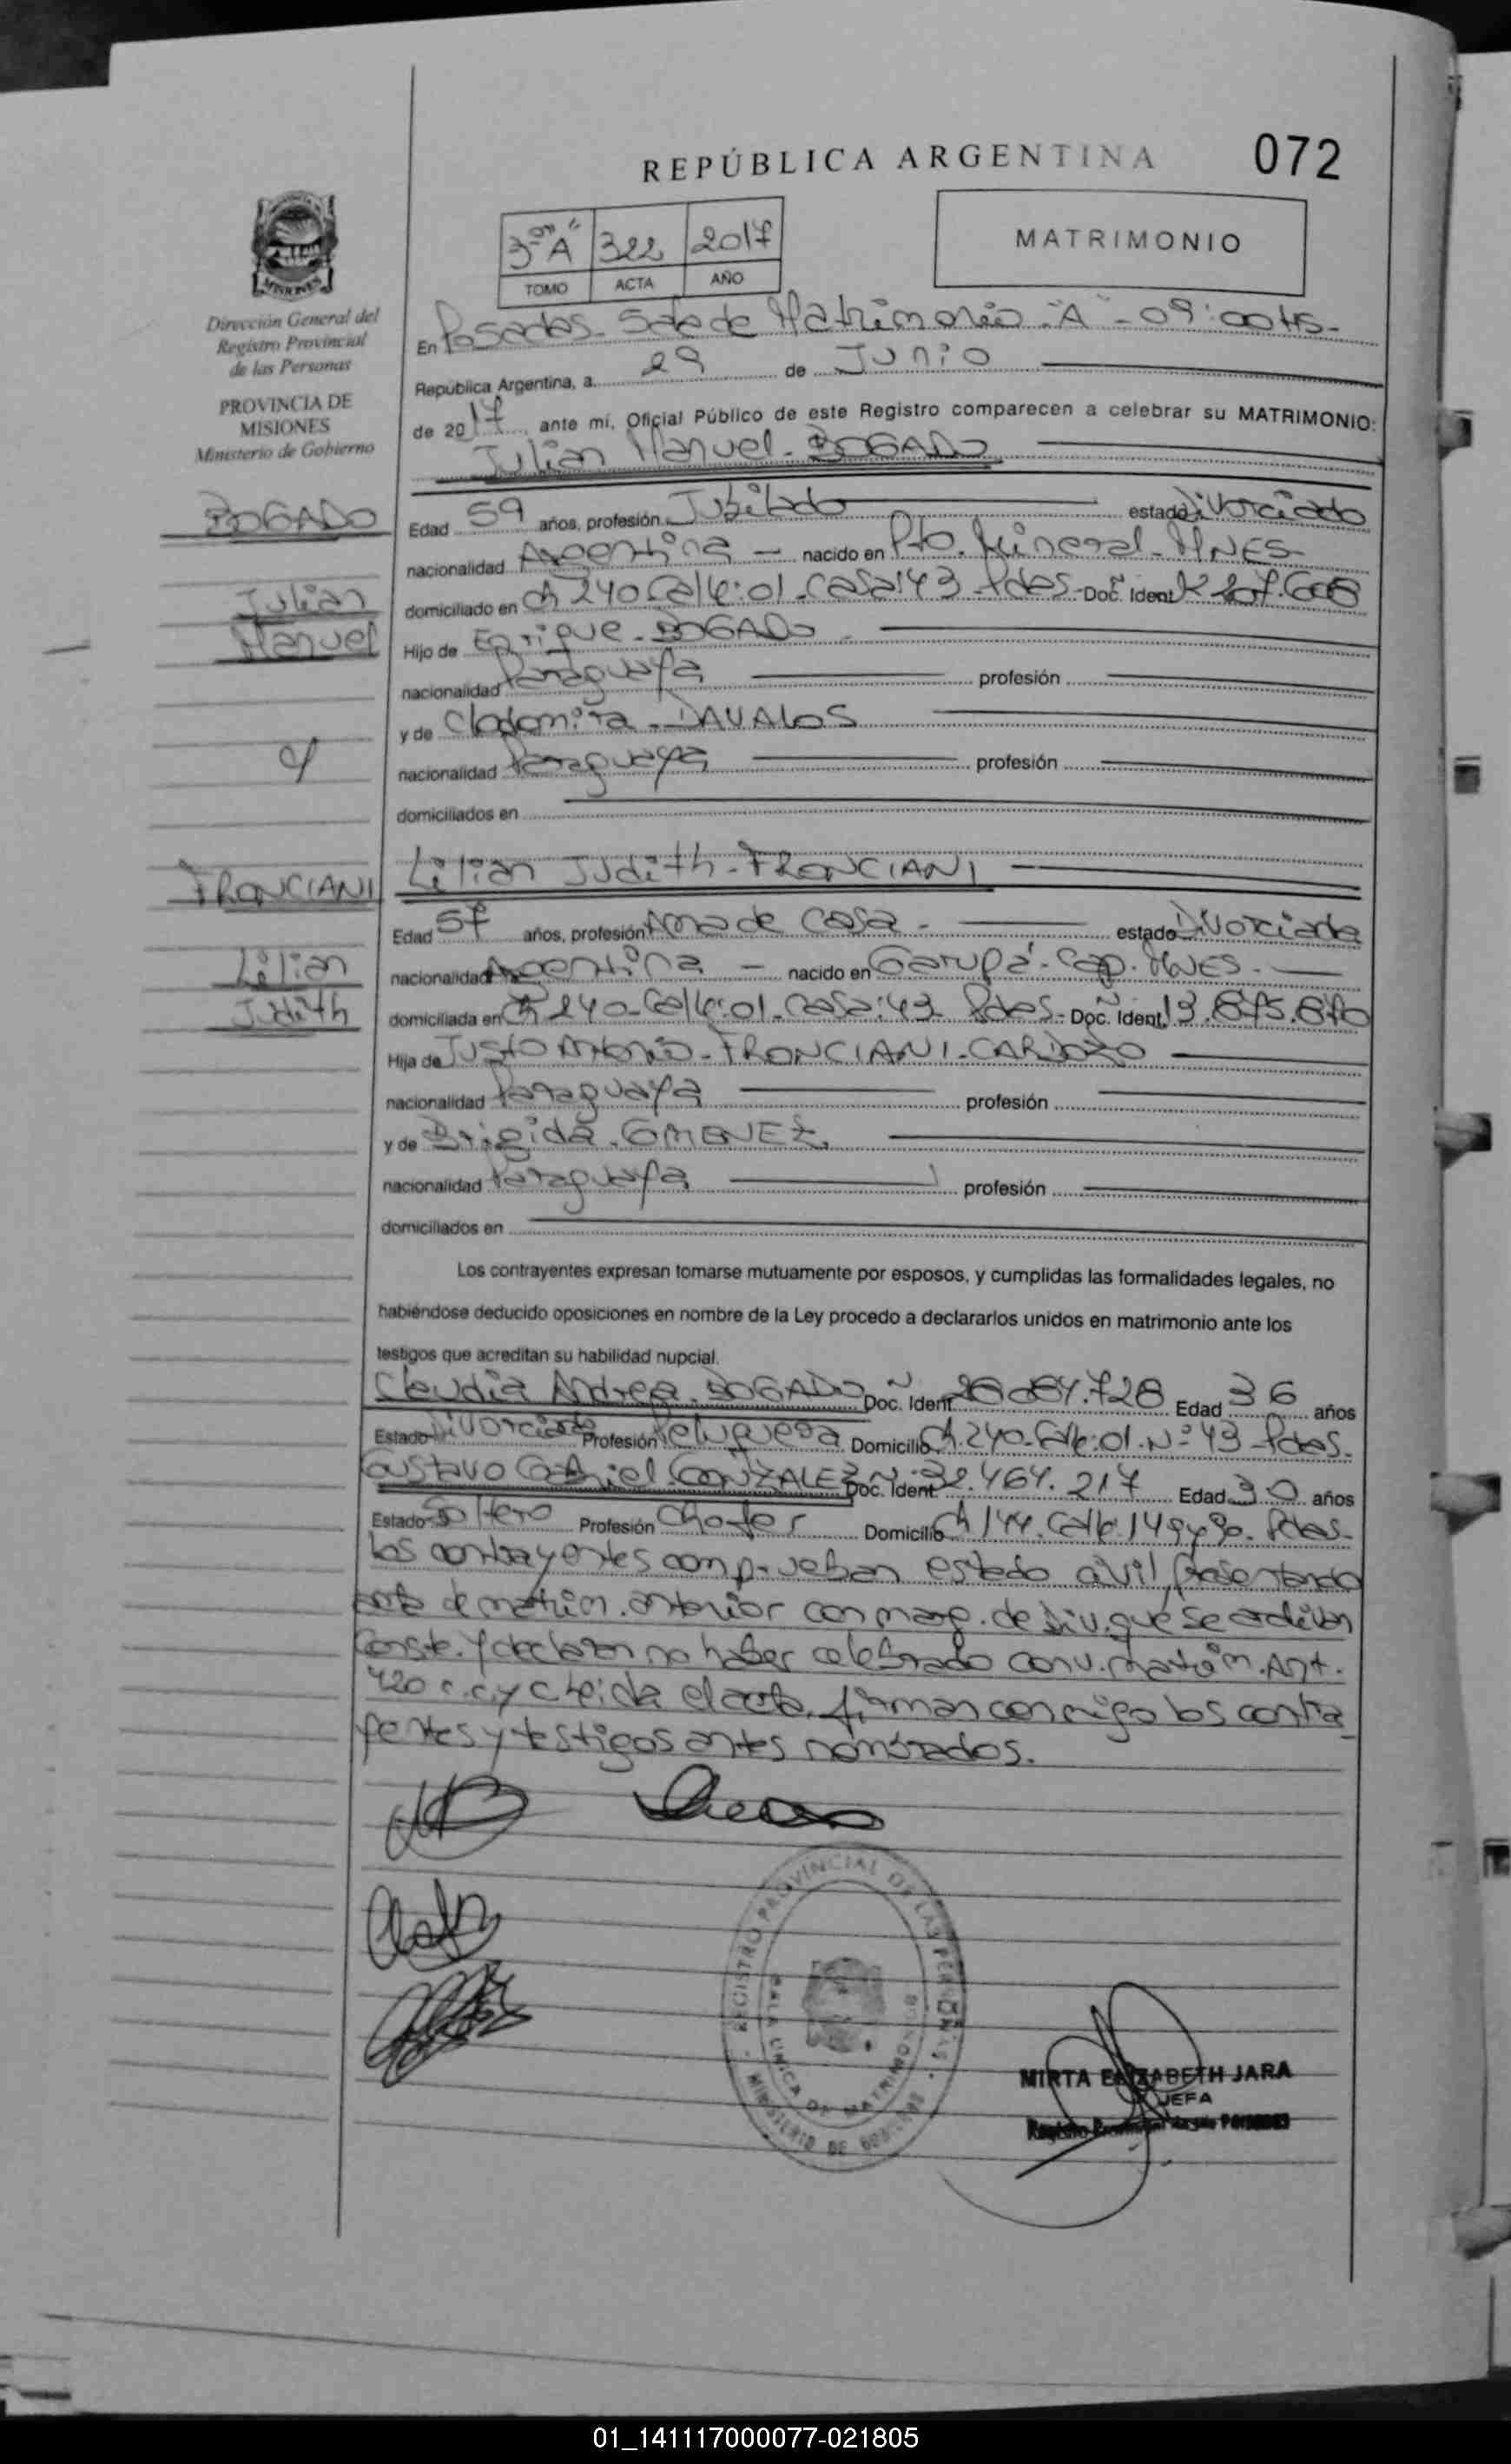 REPÚBLICA ARGENTINA
072
3º "A" 322 2017
TOMO ACTA AÑO
MATRIMONIO
MISIONES
Dirección General del
Registro Provincial
de las Personas
PROVINCIA DE
MISIONES
Ministerio de Gobierno
En Posadas - Sala de Matrimonio "A" - 09:00 Hs-
República Argentina, a 29 de Junio
de 2017, ante mí, Oficial Público de este Registro comparecen a celebrar su MATRIMONIO:
Julian Manuel - BOGADO
BOGADO
Edad 59 años, profesión Jubilado estado divorciado
nacionalidad Argentina - nacido en Pto. Mineral - MNES-
Julian
domiciliado en Ch 240 Calle: 01 - Casa: 43 - Pdas - Doc. Ident.
Manuel
Hijo de Enrique - BOGADO -
nacionalidad Paraguaya profesión
y de Clodomira - DAVALOS
c/
nacionalidad Paraguaya profesión
domiciliados en
FRONCIANI
Lilian Judith - FRONCIANI
Edad 57 años, profesión Ama de Casa - estado Divorciada
Lilian
nacionalidad Argentina - nacido en Garupá - Cap. MNES. -
Judith
domiciliada en Ch 240 - Calle: 01 - Casa: 43 Pdas - Doc. Ident. 13.875.870
Hija de Justo Antonio - FRONCIANI - CARDOZO
nacionalidad Paraguaya profesión
y de Brigida - GIMENEZ
nacionalidad Paraguaya profesión
domiciliados en
Los contrayentes expresan tomarse mutuamente por esposos, y cumplidas las formalidades legales, no
habiéndose deducido oposiciones en nombre de la Ley procedo a declararlos unidos en matrimonio ante los
testigos que acreditan su habilidad nupcial.
Claudia Andrea - BOGADO Doc. Ident. Edad 36 años
Estado Divorciada Profesión Peluquera Domicilio Ch. 240 - Calle: 01 - Nº 43 - Pdas.
Gustavo Gabriel - GONZALEZ Doc. Ident. 32.464.217 Edad 30 años
Estado Soltero Profesión Chofer Domicilio Ch 144 - Calle 149 y 90 - Pdas-
los contrayentes comprueban estado civil, presentando
acta de matrim. anterior con marg. de Div. que se archivan
Conste. y declaran no haber celebrado conv. matrim. Art.
420 c.c.y c Leída el acta, firman conmigo los contra
yentes y testigos antes nombrados.
REGISTRO PROVINCIAL DE LAS PERSONAS
SALA UNICA DE MATRIMONIOS
MINISTERIO DE GOBIERNO
MIRTA ELIZABETH JARA
JEFA
Registro Provincial de las Personas
01_141117000077-021805